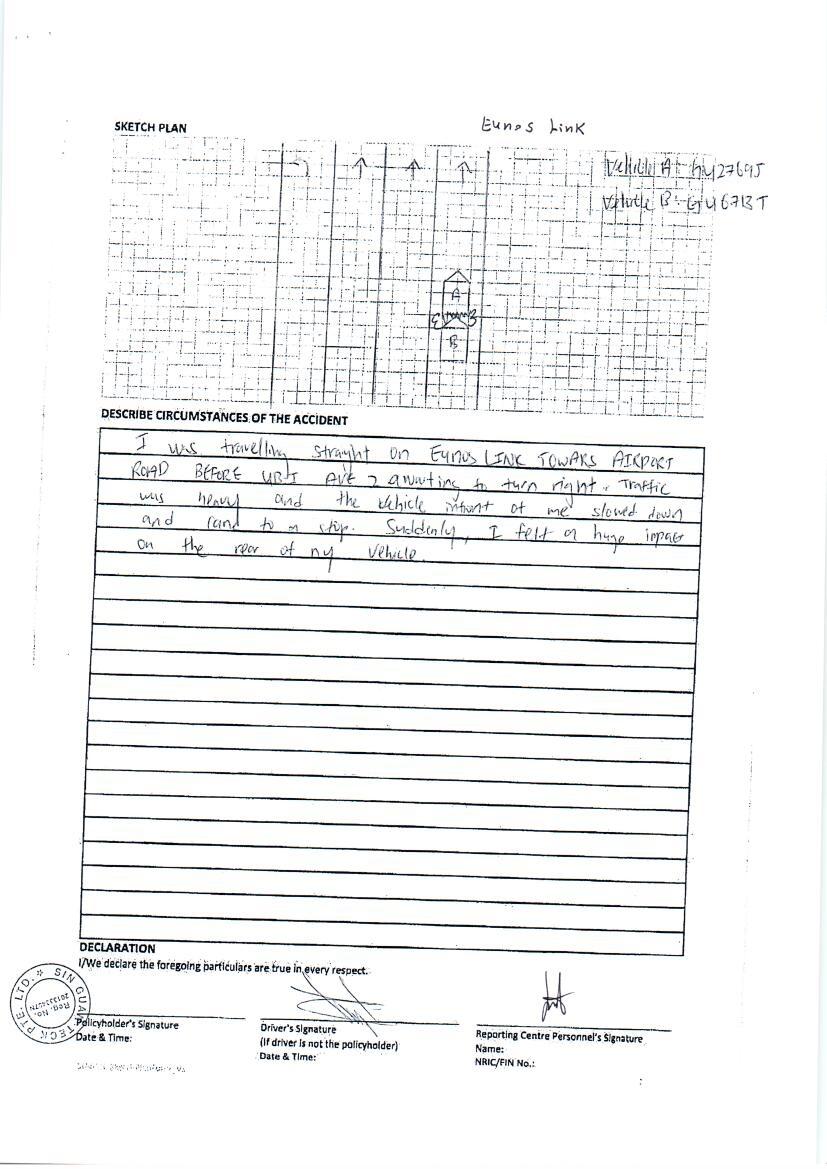 SKETCH PLAN
Eunos Link
Vehicle A: GY2769J
Vehicle B: GY6713T
A
B
DESCRIBE CIRCUMSTANCES OF THE ACCIDENT
I was travelling straight on EUNOS LINK TOWARS AIRPORT
ROAD BEFORE UBI AVE 2 awaiting to turn right. Traffic
was heavy and the vehicle infront of me slowed down
and to a stop. Suddenly, I felt a huge impact
on the rear of my vehicle.
DECLARATION
I/We declare the foregoing particulars are true in every respect.
SIN GUAN TECK PTE. LTD.
Reg. No.
Policyholder's Signature
Date & Time:
Driver's Signature
(If driver is not the policyholder)
Date & Time:
Reporting Centre Personnel's Signature
Name:
NRIC/FIN No.: